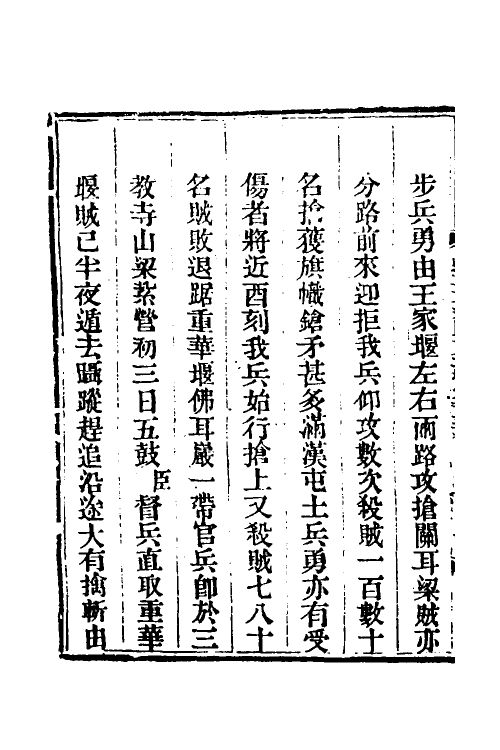 步兵勇由王家堰左右兩路攻搶關耳梁賊亦
分路前來迎拒我兵仰攻數次殺賊一百數十
名搶獲旗幟鎗矛甚多滿漢屯土兵勇亦有受
傷者將近酉刻我兵始行搶上又殺賊七八十
名賊敗退踞重華堰佛耳巖一帶官兵卽於三
教寺山梁紮營初三日五鼓臣督兵直取重華
堰賊已半夜遁去躡蹤趕追沿途大有擒斬由